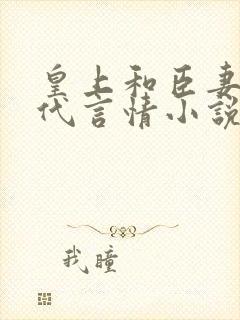 皇上和臣妻
代言情小說
我瞳